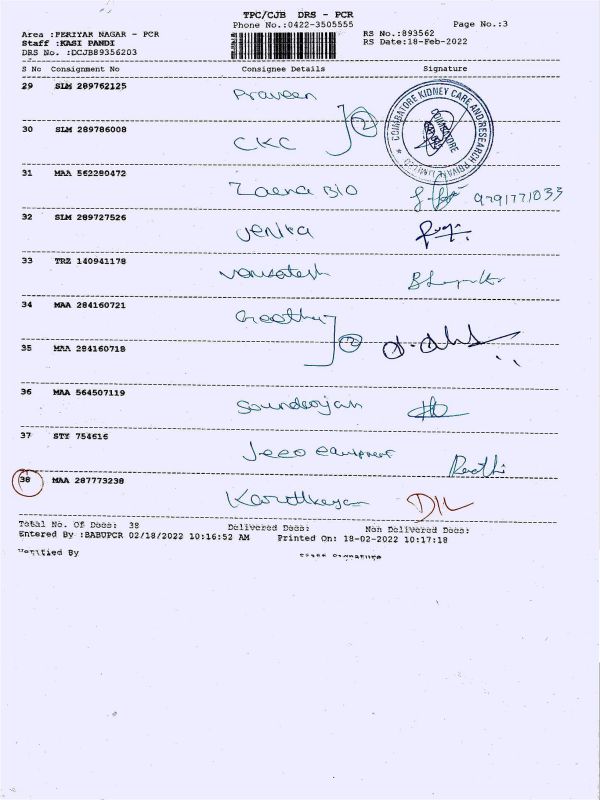 TPC/CJB DRS - PCR
Phone No.:0422-3505555
Page No.:3
Area :PERIYAR NAGAR - PCR
RS No.:893562
Staff :KASI PANDI
RS Date:18-Feb-2022
DRS No. :DCJB89356203
S No Consignment No Consignee Details Signature
29 SLM 289762125 Praveen
COIMBATORE KIDNEY CARE AND RESEARCH PRIVATE LIMITED
COIMBATORE
30 SLM 289786008 CKC
2
31 MAA 562280472 Zaena Bio 9791771033
32 SLM 289727526 Jenita
33 TRZ 140941178 Venkatesh
34 MAA 284160721
2
35 MAA 284160718
36 MAA 564507119 Sounderajan
37 STY 754616 Jeeo Equipment
38 MAA 287773238 Karthikeyan
Total No. Of Docs: 38 Delivered Docs: Non Delivered Docs:
Entered By :BABUPCR 02/18/2022 10:16:52 AM Printed On: 18-02-2022 10:17:18
Verified By